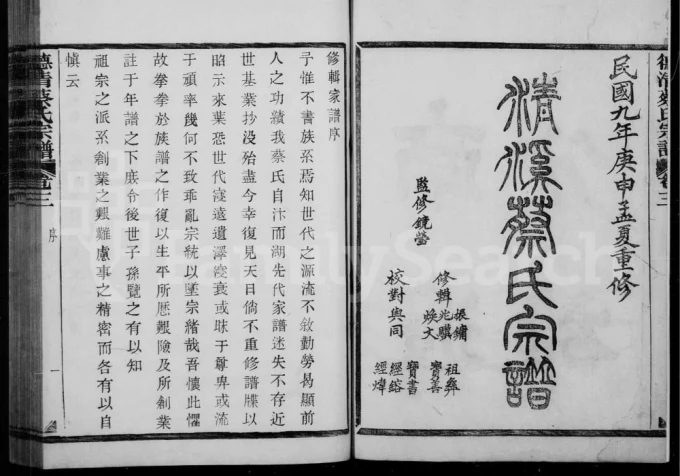 民國九年庚申孟夏重修
清溪蔡氏宗譜
監修鏡瑩
修輯
振鏞
兆騏
煥文
校對與同
祖彝
寶善
寶書
經鎔
經煒
德清蔡氏宗譜
卷三
修輯家譜序
予惟不書族系焉知世代之源流不敘勳勞曷顯前
人之功績我蔡氏自汴而湖先代家譜迷失不存近
世基業抄没殆盡今幸復見天日倘不重修譜牒以
昭示來葉恐世代寖遠遺澤寖衰或昧于尊卑或流
于頑率幾何不致乖亂宗統以墜宗緒哉吾懷此懼
故拳拳於族譜之作復以生平所歷艱險及所創業
註于年譜之下庶令後世子孫覽之有以知
祖宗之派系創業之艱難慮事之精密而各有以自
慎云
德清蔡氏宗譜
卷三
序
一
FamilySearch